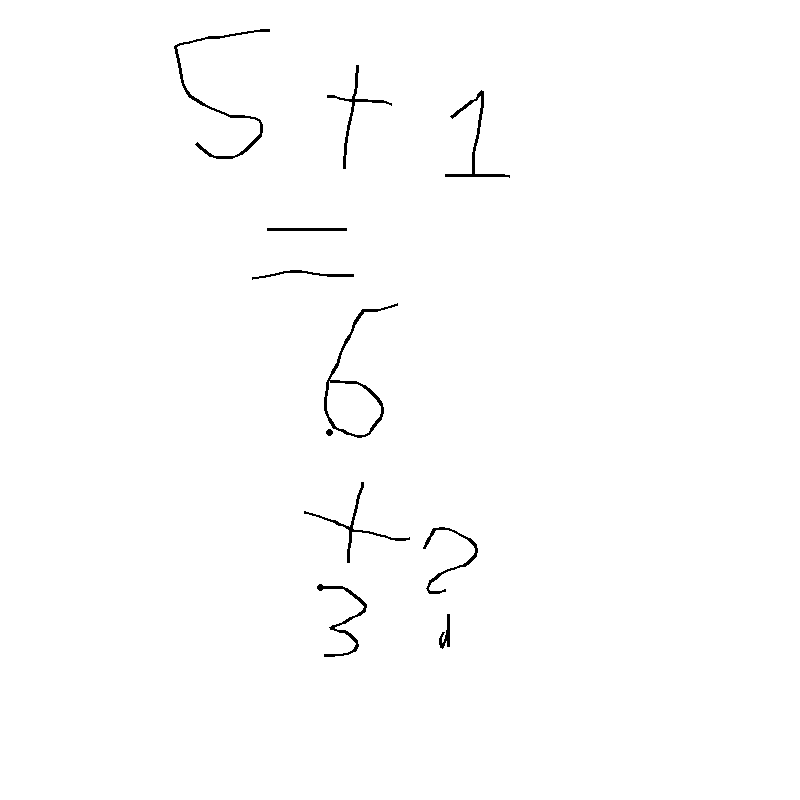 5 + 1
=
6
+
3 ?